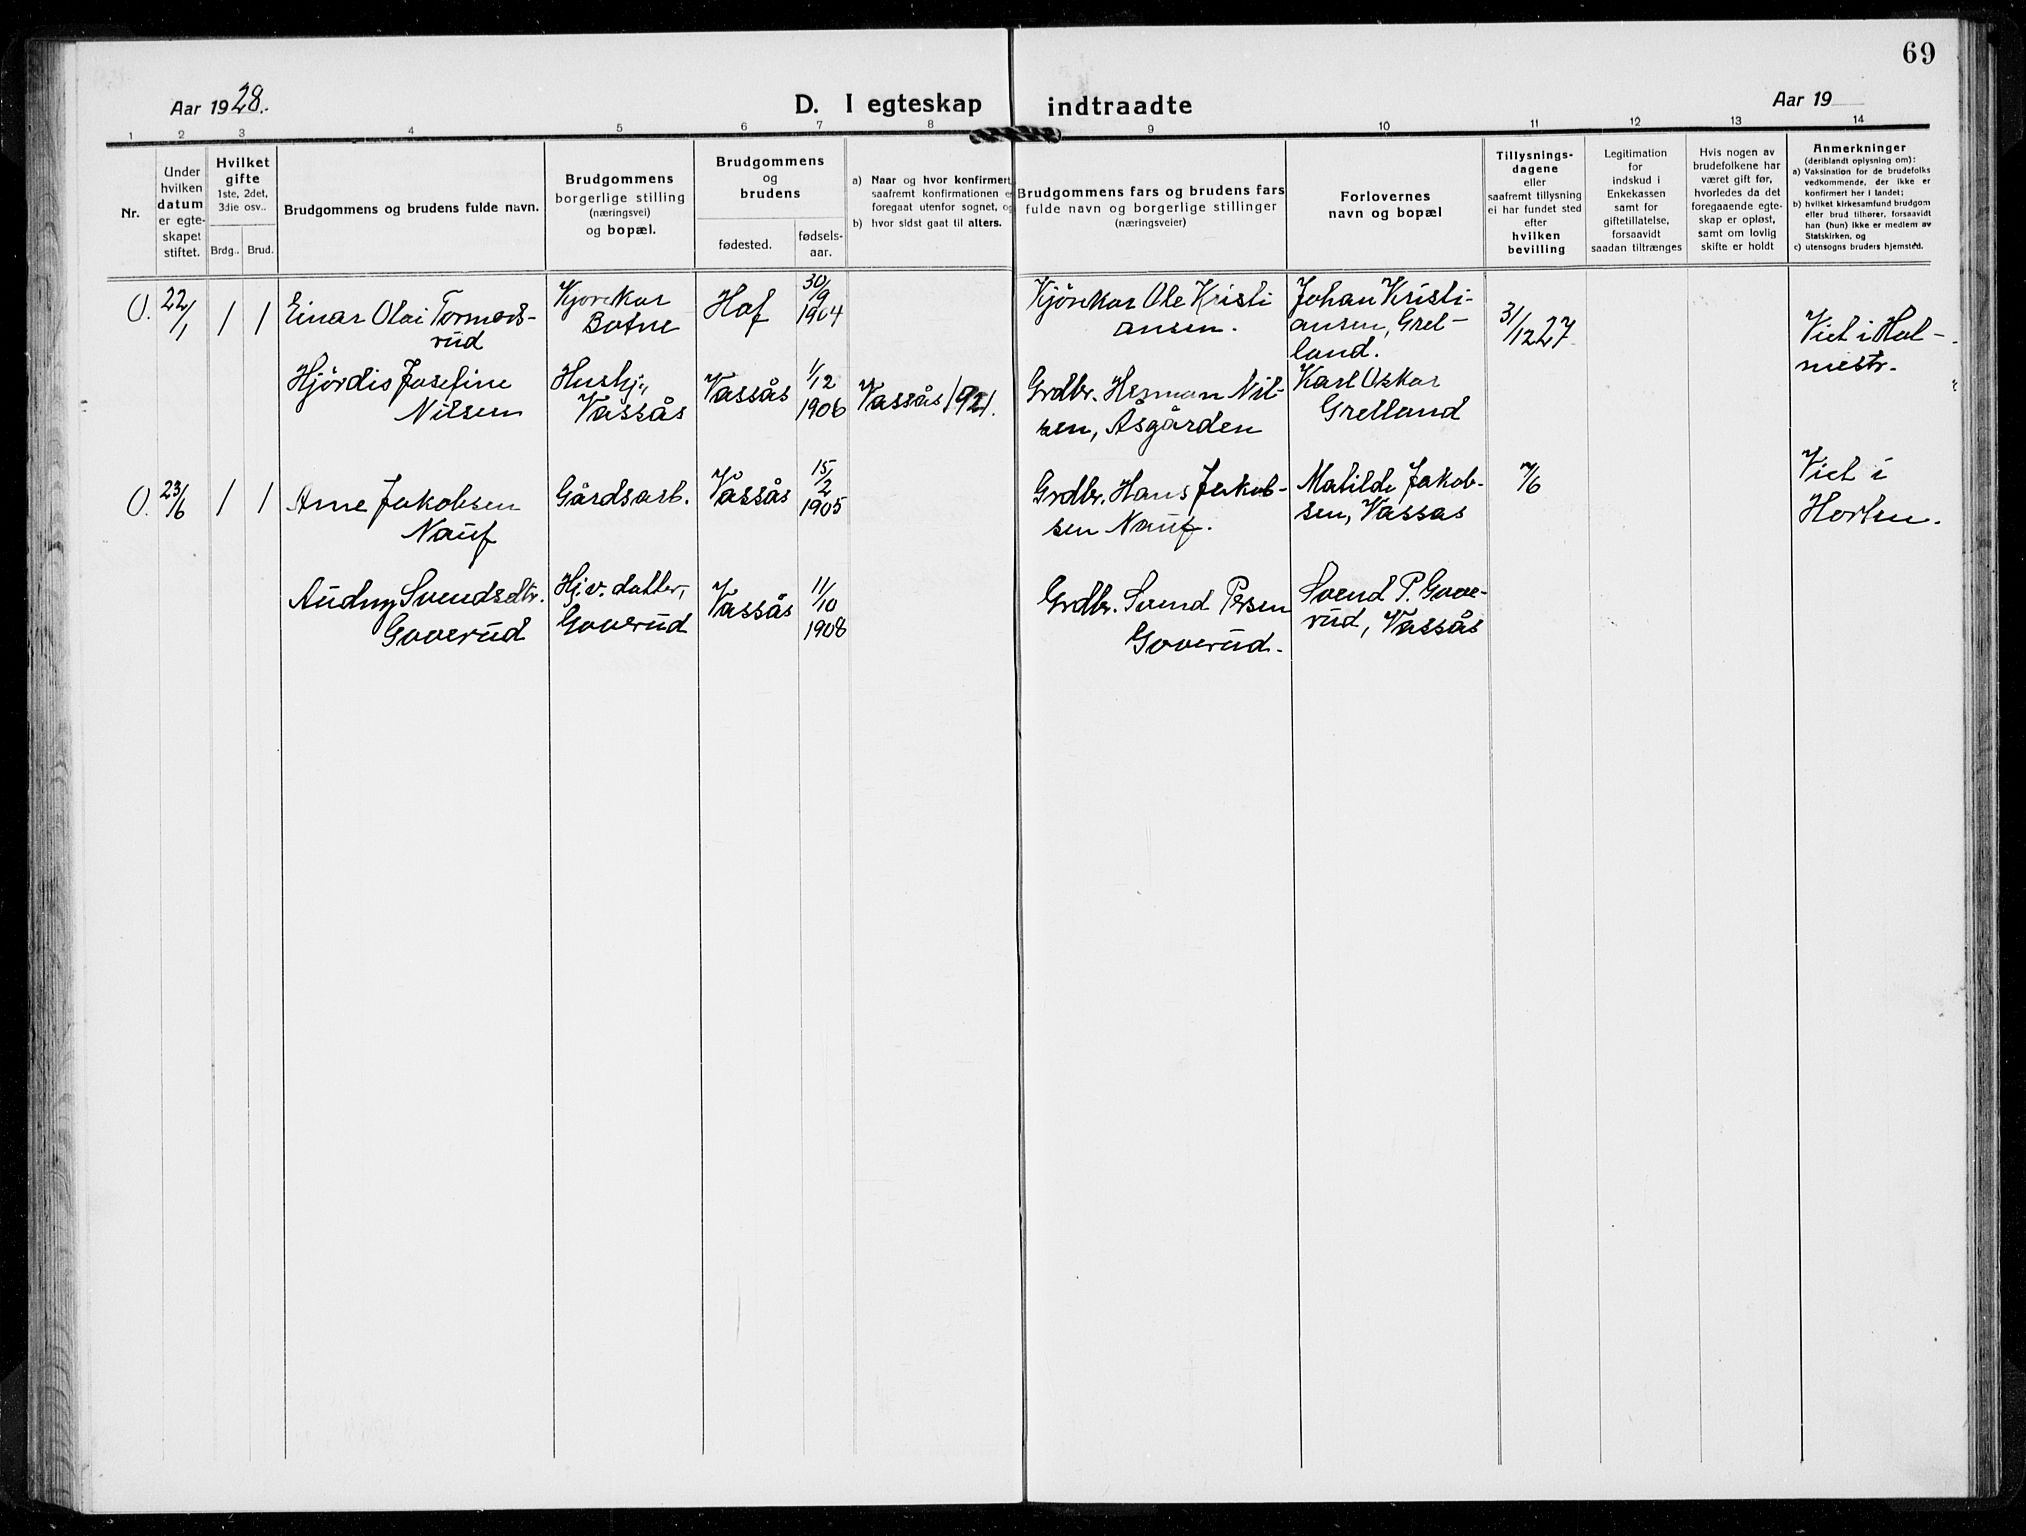 69
Aar 1928.
D. I egteskap indtraadte
Aar 19
1 2 3 4 5 6 7 8 9 10 11 12 13 14
Nr.
Under
hvilken
datum
er egte-
skapet
stiftet.
Hvilket
gifte
1ste, 2det,
3die osv..
Brdg.. Brud.
Brudgommens og brudens fulde navn.
Brudgommens
borgerlige stilling
(næringsvei)
og bopæl.
Brudgommens
og
brudens
fødested.
fødsels-
aar.
a) Naar og hvor konfirmert,
saafremt konfirmationen e
foregaat utenfor sognet, og
b) hvor sidst gaat til alters.
Brudgommens fars og brudens fars
fulde navn og borgerlige stillinger
(næringsveier)
Forlovernes
navn og bopæl
Tillysnings-
dagene
eller
saafremt tillysning
ei har fundet sted
efter
hvilken
bevilling
Legitimation
for
indskud i
Enkekassen
samt for
giftetillatelse,
forsaavidt
saadan tiltrænges
Hvis nogen av
brudefolkene har
været gift før,
hvorledes da det
foregaaende egte-
skap er opløst,
samt om lovlig
skifte er holdt
Anmerkninger
(deriblandt oplysning om):
a) Vaksination for de brudefolks
vedkommende, der ikke er
konfirmert her i landet;
b) hvilket kirkesamfund brudgom
eller brud tilhører, forsaavidt
han (hun) ikke er medlem av
Statskirken, og
c) utensogns bruders hjemsted.
O. 22/1 1 1
Einar Olai Tormods-
rud
Kjørekar
Botne
Hof
30/9
1904
Kjörekar Ole Kristi
ansen.
Johan Kristi-
ansen, Grel-
land.
31/12 27.
Viet i Hol-
mestr.
Hjördis Josefine
Nilsen
Hushj.,
Vassås
Vassås
1/12
1906
Vassås 1921.
Grdbr. Herman Nil-
sen, Åsgården
Karl Oskar
Grelland
O. 23/6 1 1
Arne Jakobsen
Nauf
Gårdsarb.
Vassås
15/2
1905
Grdbr. Hans Jakob-
sen Nauf.
Matilde Jakob-
sen, Vassas
7/6
Viet i
Horten.
Audny Svendsdtr.
Gooverud
Hj.v. datter,
Gooverud
Vassås
11/10
1908
Grdbr. Svend Persen
Gooverud.
Svend P. Goove-
rud, Vassås